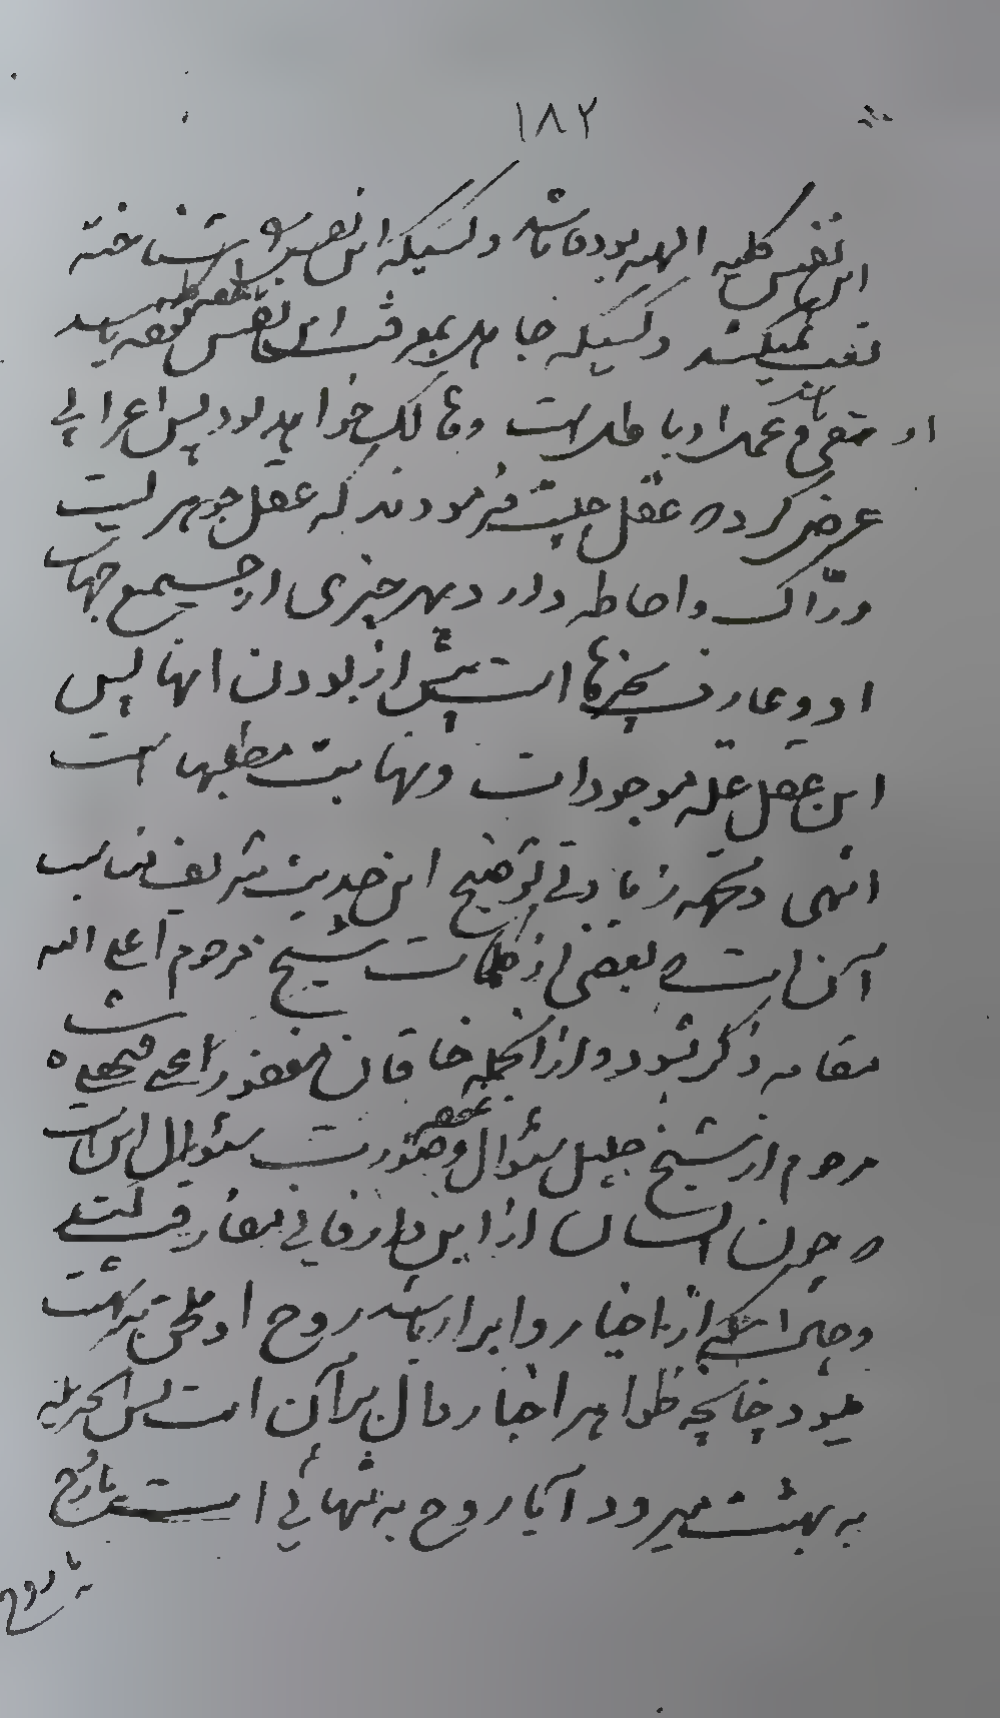 ۱۸۲
این نفس کلیه الهیه بوده باشد و کسیکه این نفس را شناخته
تعب نمیکشد و کسیکه جاهل بمعرفت این نفس کلیه باشد
او شقی و عمل او باطل است و هالک خواهد بود پس اعرابی
عرض کرد که عقل چیست فرمودند که عقل جوهریست
درّاک و احاطه دارد بهر چیزی از جمیع جهات
او و عارف بچیزها است پیش از بودن انها پس
این عقل علة موجودات و نهایت مطلبها است
انتهی و بجهة زیادتی توضیح این حدیث شریف مناسب
آن است که بعضی از کلمات شیخ مرحوم اعلی الله
مقامه ذکر شود و از انجمله خاقان مغفور فتحعلی شاه
مرحوم از شیخ جلیل سئوال و صورت سئوال این است
که چون انسان از این دار فانی مفارقت
و چنانکه از اخیار و ابرار باشد روح او ملحق به بهشت
میشود چنانچه ظواهر اخبار دال بر آن است پس
به بهشت میرود آیا روح به تنهائی است یا روح
یا روح